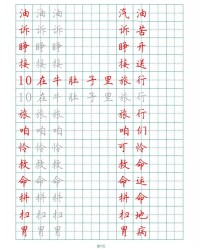 油 油 油 汽 油
诉 诉 诉 诉 苦
睁 睁 睁 睁 开
接 接 接 接 送
10 在 牛 肚 子 里 旅 行
10 在 牛 肚 子 里 旅 行
旅 旅 旅 旅 行
咱 咱 咱 咱 们
怜 怜 怜 可 怜
救 救 救 救 命
命 命 命 命 运
拼 拼 拼 拼 命
扫 扫 扫 扫 地
胃 胃 胃 胃 病